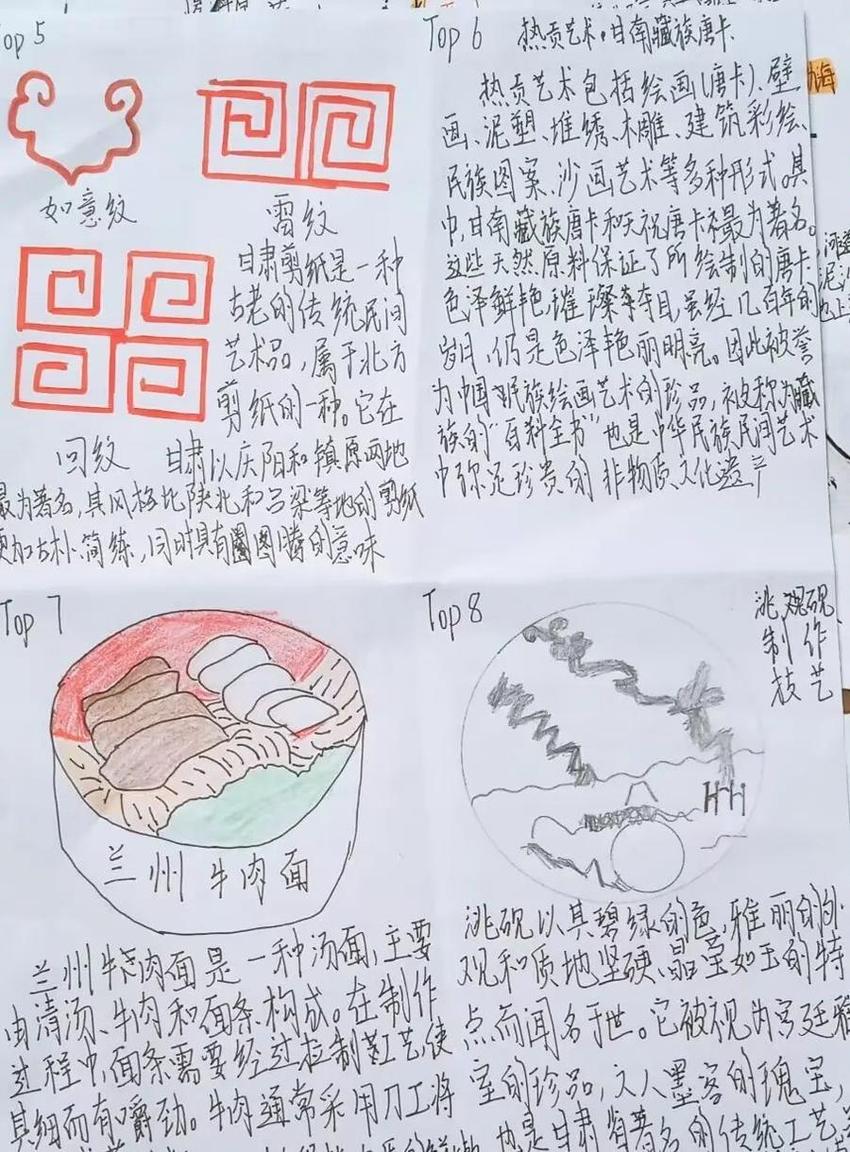 Top 5
如意纹
雷纹
甘肃剪纸是一种
古老的传统民间
艺术品，属于北方
剪纸的一种。它在
回纹 甘肃以庆阳和镇原两地
最为著名，其风格比陕北和吕梁等地的剪纸
更加古朴简练，同时具有圈图腾的意味
Top 6 热贡艺术。甘南藏族唐卡
热贡艺术包括绘画(唐卡)、壁
画、泥塑、堆绣、木雕、建筑彩绘、
民族图案、沙画艺术等多种形式。其
中，甘南藏族唐卡和天祝唐卡最为著名。
这些天然原料保证了所绘制的唐卡
色泽鲜艳，璀璨夺目，虽经几百年的
岁月，仍是色泽艳丽明亮。因此被誉
为中国民族绘画艺术的珍品，被称为藏
族的“百科全书”也是中华民族民间艺术
中弥足珍贵的非物质文化遗产
Top 7
兰州牛肉面
兰州牛肉面是一种汤面，主要
由清汤、牛肉和面条构成。在制作
过程中，面条需要经过拉制工艺使
其细而有嚼劲。牛肉通常采用刀工将
Top 8
洮砚砚
制作
技艺
洮砚以其碧绿的色，雅丽的外
观和质地坚硬、晶莹如玉的特
点而闻名于世。它被视为宫廷雅
室的珍品，文人墨客的瑰宝，
也是甘肃省著名的传统工艺